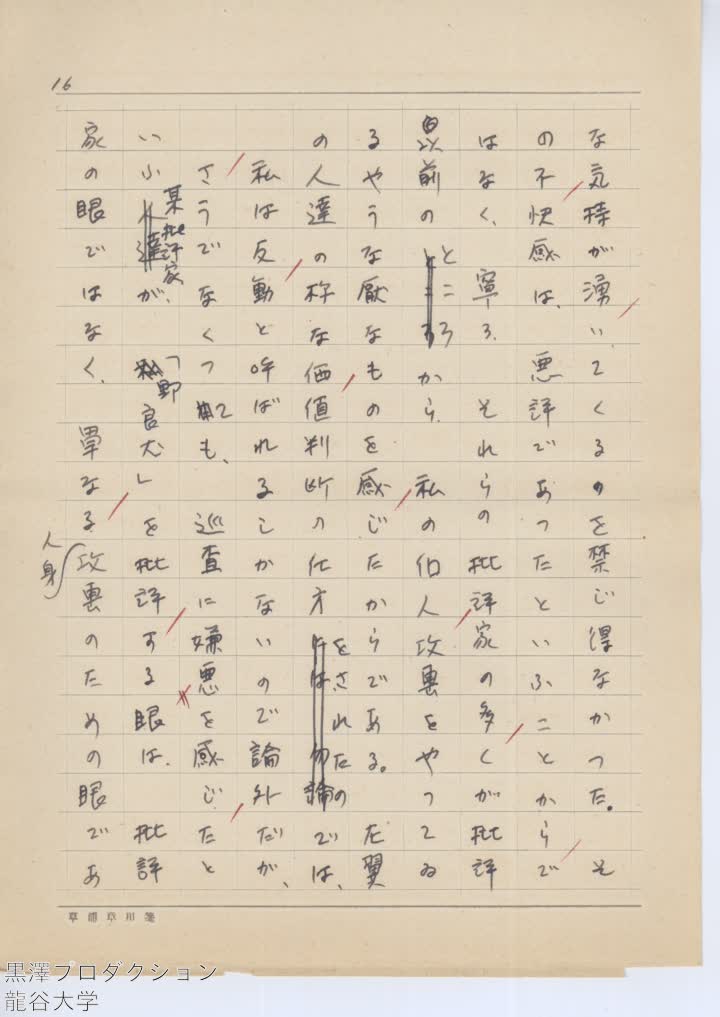 16
な気持が湧いてくるのを禁じ得なかつた。そ
の不快感は、悪評であつたといふことからで
はなく、寧ろ、それらの批評家の多くが批評
以前のところから、私の個人攻撃をやつてゐ
るやうな厭なものを感じたからである。左翼
の人達の様な価値判断の仕方をされたのでは、
私は反動と呼ばれるしかないので論外だが、
さうでなくつても、巡査に嫌悪を感じたと
いふ某批評家が、「野良犬」を批評する眼は、批評
家の眼ではなく、単なる人身攻撃のための眼であ
黒澤プロダクション
龍谷大学